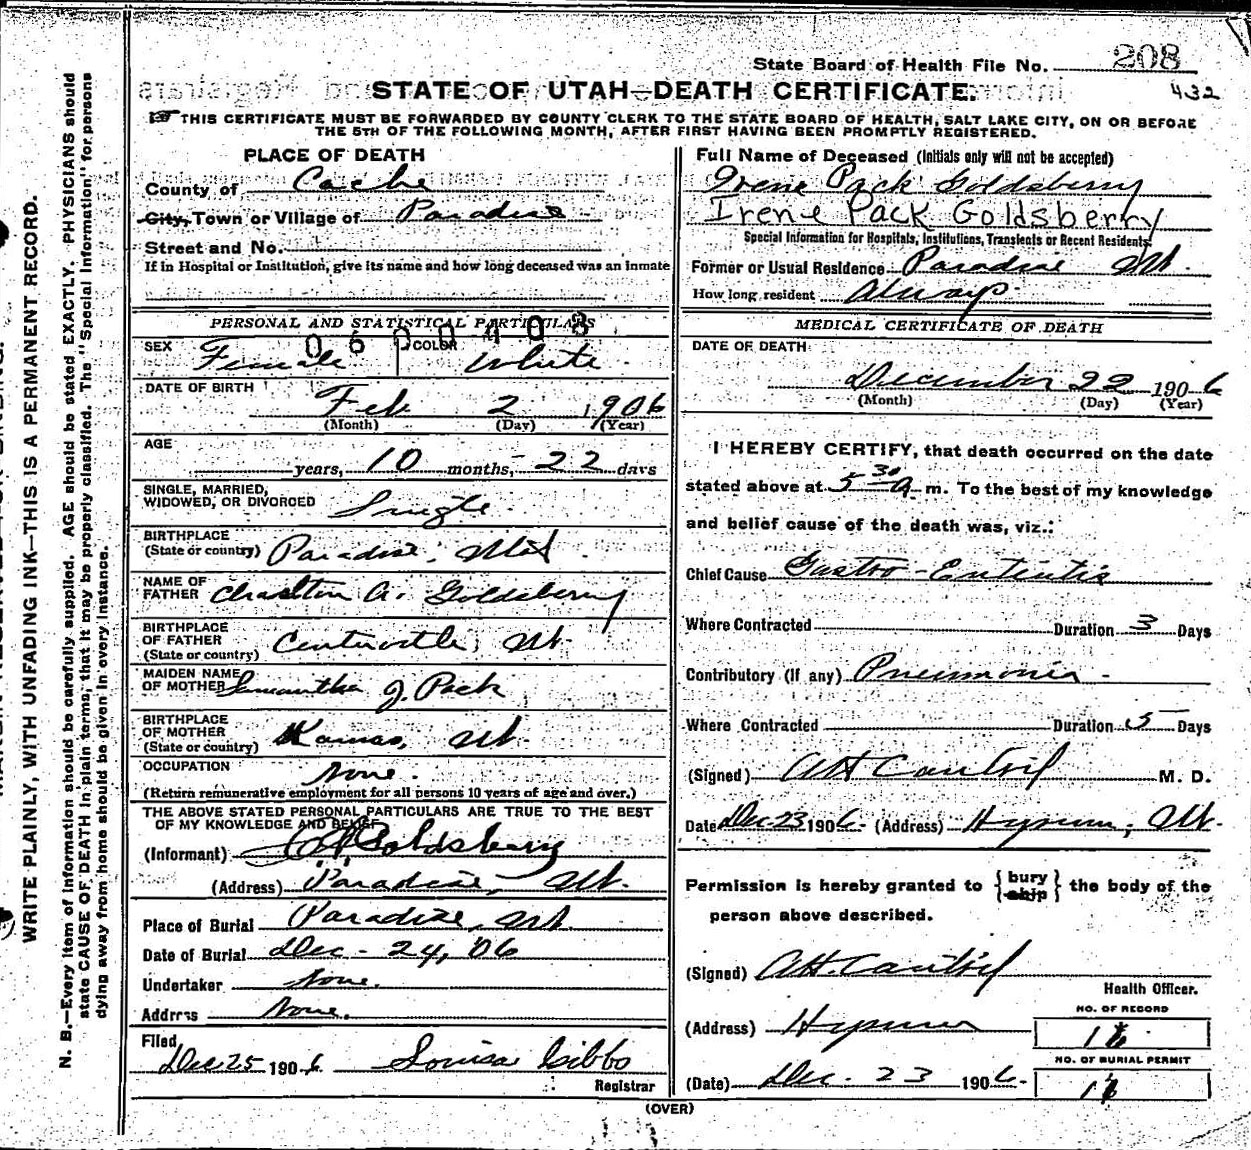 State Board of Health File No. 208
432
STATE OF UTAH—DEATH CERTIFICATE.
THIS CERTIFICATE MUST BE FORWARDED BY COUNTY CLERK TO THE STATE BOARD OF HEALTH, SALT LAKE CITY, ON OR BEFORE
THE 5TH OF THE FOLLOWING MONTH, AFTER FIRST HAVING BEEN PROMPTLY REGISTERED.
WRITE PLAINLY, WITH UNFADING INK—THIS IS A PERMANENT RECORD.
N. B.—Every item of information should be carefully supplied. AGE should be stated EXACTLY. PHYSICIANS should
state CAUSE OF DEATH in plain terms, that it may be properly classified. The "Special Information" for persons
dying away from home should be given in every instance.
PLACE OF DEATH
County of Cache
City, Town or Village of Paradise
Street and No.
If in Hospital or Institution, give its name and how long deceased was an inmate
PERSONAL AND STATISTICAL PARTICULARS
0600408
SEX Female COLOR White
DATE OF BIRTH Feb 2 1906
(Month) (Day) (Year)
AGE
years, 10 months, 22 days
SINGLE, MARRIED,
WIDOWED, OR DIVORCED Single
BIRTHPLACE
(State or country) Paradise, Utah
NAME OF
FATHER Charlton A. Goldsberry
BIRTHPLACE
OF FATHER
(State or country) Centerville, Ut.
MAIDEN NAME
OF MOTHER Samantha J. Pack
BIRTHPLACE
OF MOTHER
(State or country) Kamas, Ut.
OCCUPATION None.
(Return remunerative employment for all persons 10 years of age and over.)
THE ABOVE STATED PERSONAL PARTICULARS ARE TRUE TO THE BEST
OF MY KNOWLEDGE AND BELIEF
(Informant) Goldsberry
(Address) Paradise, Ut.
Place of Burial Paradise, Ut.
Date of Burial Dec - 24, '06
Undertaker None.
Address None.
Filed
Dec 25 1906 Louisa Gibbs
Registrar
Full Name of Deceased (Initials only will not be accepted)
Irene Pack Goldsberry
Irene Pack Goldsberry
Special Information for Hospitals, Institutions, Transients or Recent Residents.
Former or Usual Residence Paradise Ut.
How long resident Always
MEDICAL CERTIFICATE OF DEATH
DATE OF DEATH
December 22 1906
(Month) (Day) (Year)
I HEREBY CERTIFY, that death occurred on the date
stated above at 5 30 a m. To the best of my knowledge
and belief cause of the death was, viz.:
Chief Cause Gastro-Enteritis
Where Contracted Duration 3 Days
Contributory (if any) Pneumonia
Where Contracted Duration 5 Days
(Signed) M. D.
Date Dec 23 1906 (Address) Hyrum, Ut.
Permission is hereby granted to {bury ship} the body of the
person above described.
(Signed)
Health Officer.
(Address) Hyrum
NO. OF RECORD
NO. OF BURIAL PERMIT
(Date) Dec. 23 1906
(OVER)